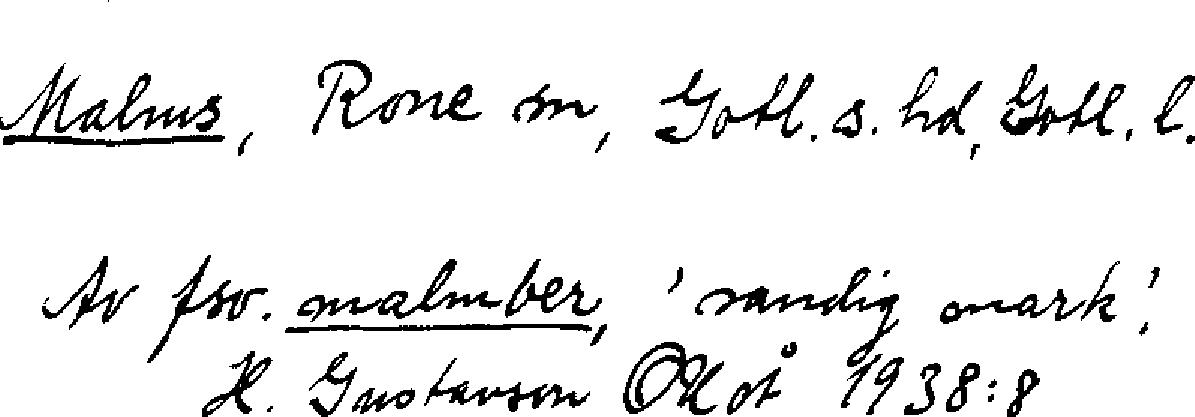 Malms, Rone sn, Gotl. s. hd, Gotl. l.
Av fsv. malmber, 'sandig mark'.
H. Gustavson OUoÅ 1938:8